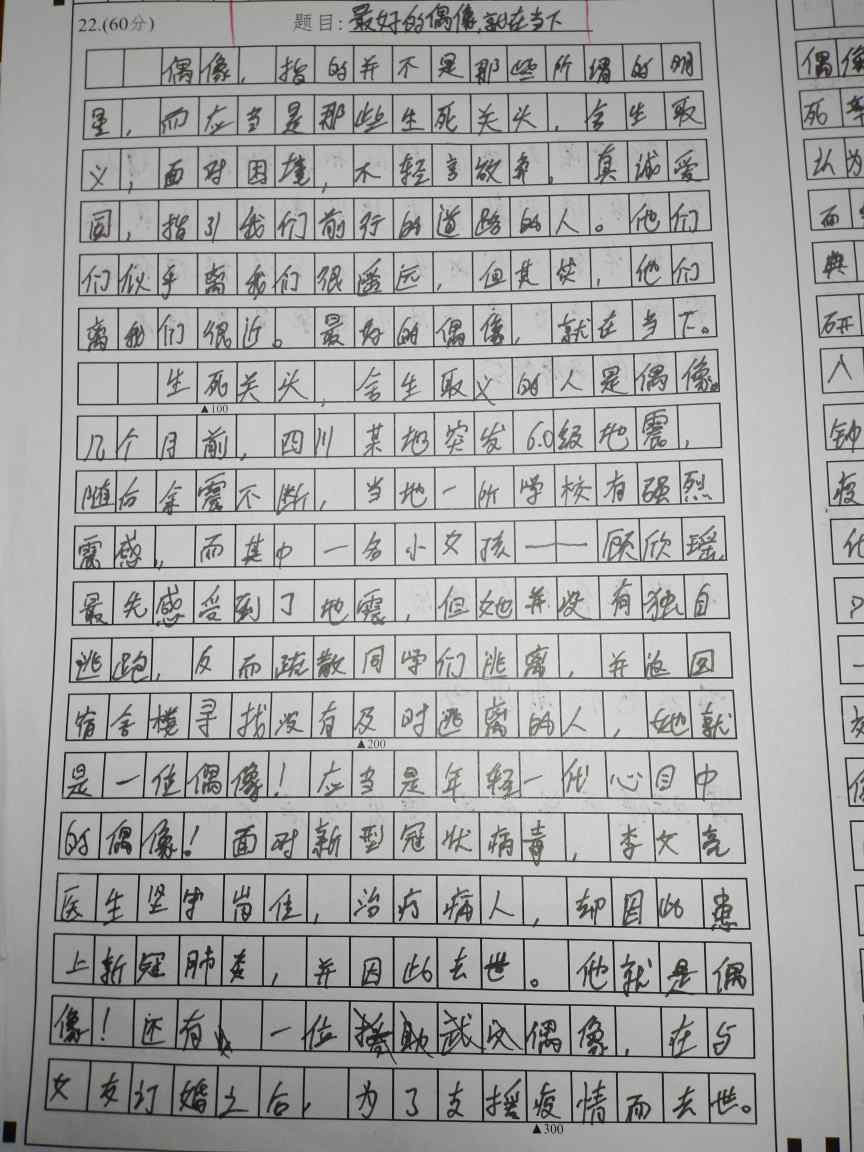 22.(60分) 题目:最好的偶像,就在当下
偶像,指的并不是那些所谓的明
星,而应当是那些生死关头,舍生取
义;面对困境,不轻言放弃,真诚爱
国,指引我们前行的道路的人。他们
们似乎离我们很遥远,但其实,他们
离我们很近。最好的偶像,就在当下。
生死关头,舍生取义的人是偶像。
▲100
几个月前,四川某地突发6.0级地震,
随后余震不断,当地一所学校有强烈
震感,而其中一名小女孩——顾欣瑶
最先感受到了地震,但她并没有独自
逃跑,反而疏散同学们逃离,并返回
宿舍楼寻找没有及时逃离的人,她就
▲200
是一位偶像!应当是年轻一代心目中
的偶像!面对新型冠状病毒,李文亮
医生坚守岗位,治疗病人,却因此患
上新冠肺炎,并因此去世。他就是偶
像!还有,一位偶像,在与
女友订婚之后,为了支援疫情而去世。
▲300
偶像
死
认为
而
典
研
人
钟
疫